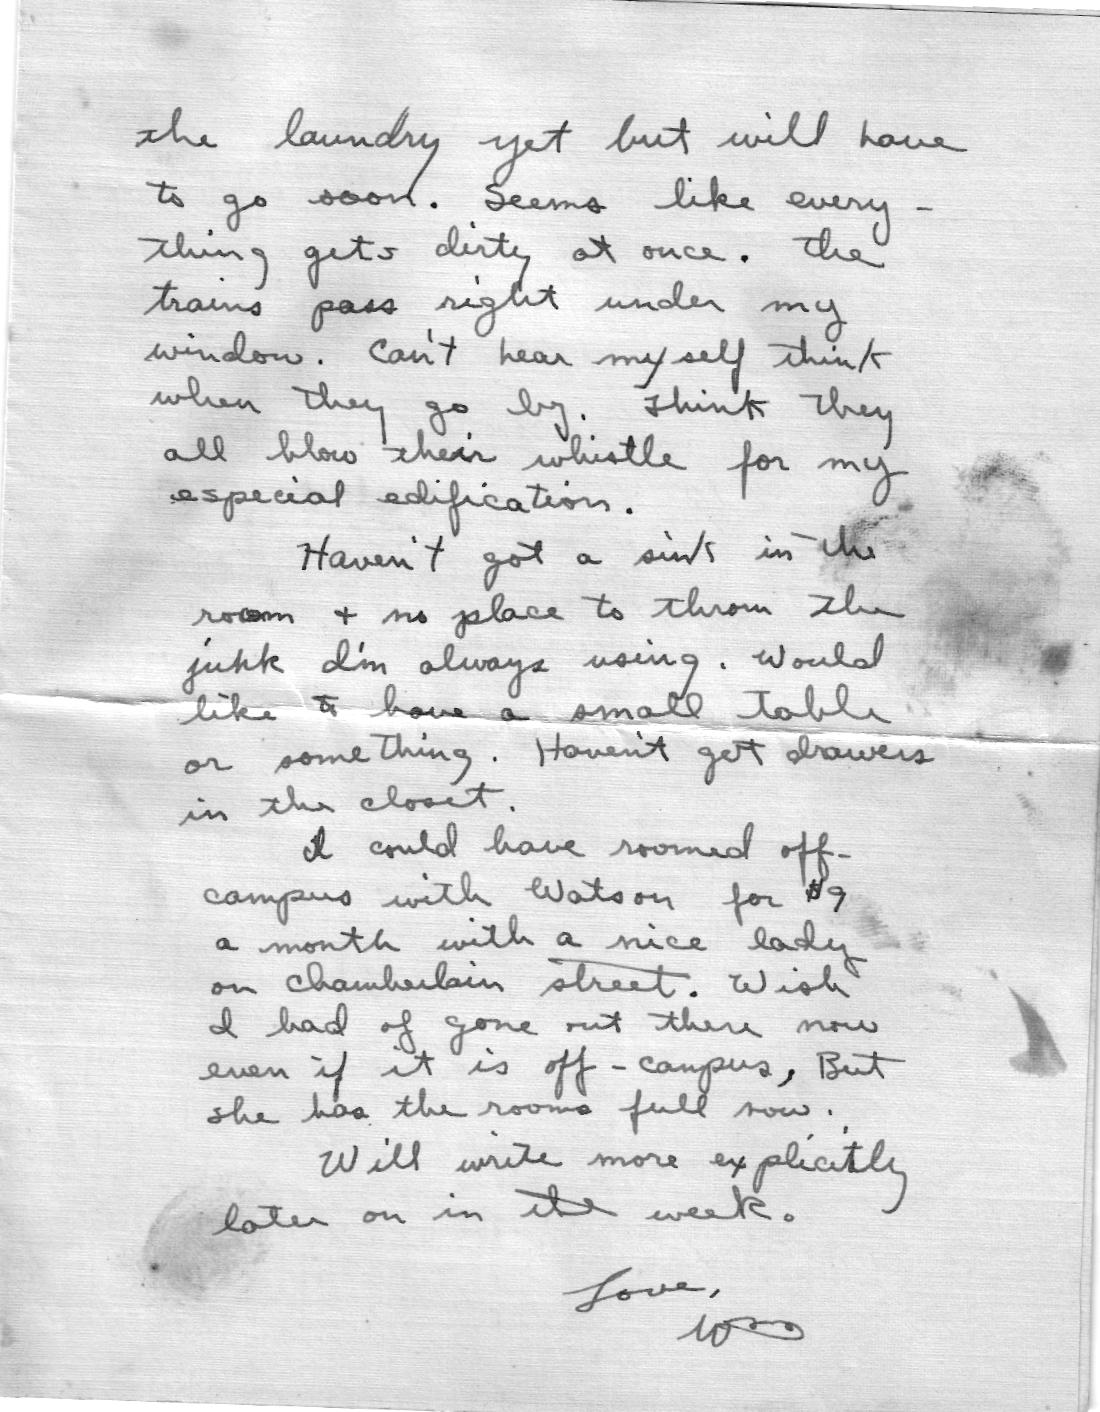 the laundry yet but will have
to go soon. Seems like every-
thing gets dirty at once. The
trains pass right under my
window. Can't hear myself think
when they go by. Think they
all blow their whistle for my
especial edification.
Haven't got a sink in the
room + no place to throw the
junk I'm always using. Would
like to have a small table
or something. Haven't get drawers
in the closet.
I could have roomed off-
campus with Watson for $9
a month with a nice lady
on Chamberlain street. Wish
I had of gone out there now
even if it is off-campus, But
she has the rooms full now.
Will write more explicitly
later on in the week.
Love,